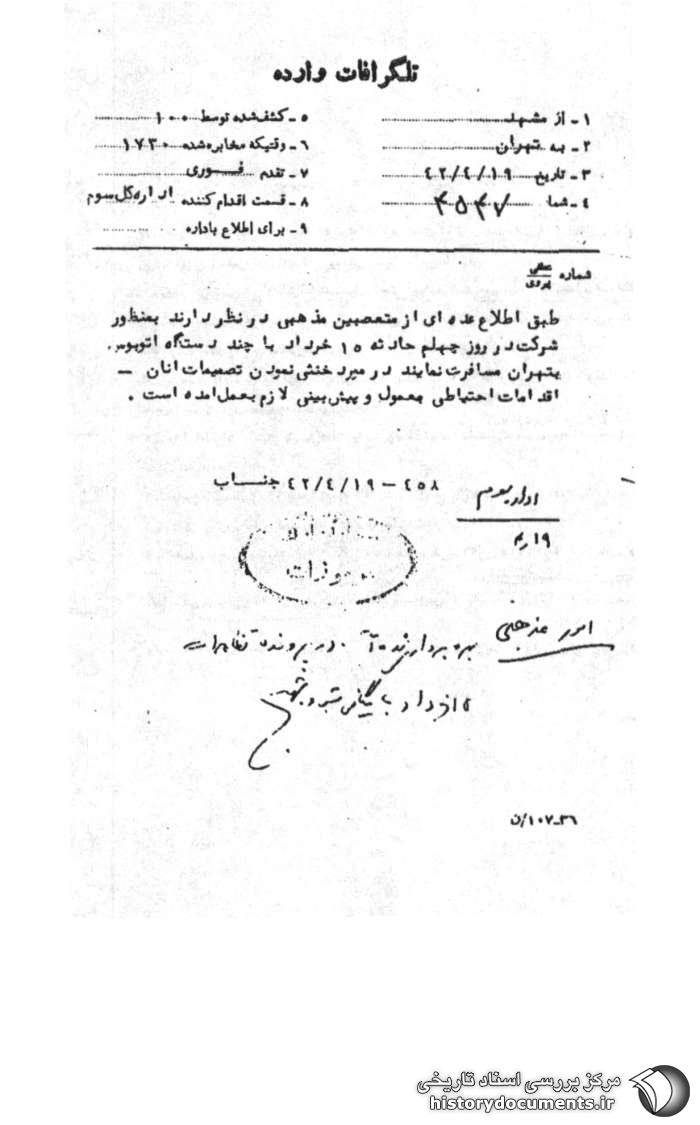 تلگرافات وارده
۱ - از مشهد
۲ - به تهران
۳ - تاریخ ۴۲/۴/۱۹
۴ - شما ۴۵۴۷
۵ - کشف‌شده توسط ۱۰۰
۶ - وقتیکه مخابره‌شده ۱۷۳۰
۷ - تقدم فوری
۸ - قسمت اقدام کننده اداره‌کل سوم
۹ - برای اطلاع باداره
شماره
طبق اطلاع عده ای از متعصبین مذهبی در نظر دارند بمنظور
شرکت در روز چهلم حادثه ۱۵ خرداد با چند دستگاه اتوبوس
بتهران مسافرت نمایند در مورد خنثی نمودن تصمیمات انان -
اقدامات احتیاطی معمول و پیش‌بینی لازم بعمل‌امده است .
۴۵۸ - ۴۲/۴/۱۹ جناب
اداره سوم
۱۹
امور مذهبی
در پرونده تظاهرات
۳۶-۱۰۷/ن
مرکز بررسی اسناد تاریخی
historydocuments.ir